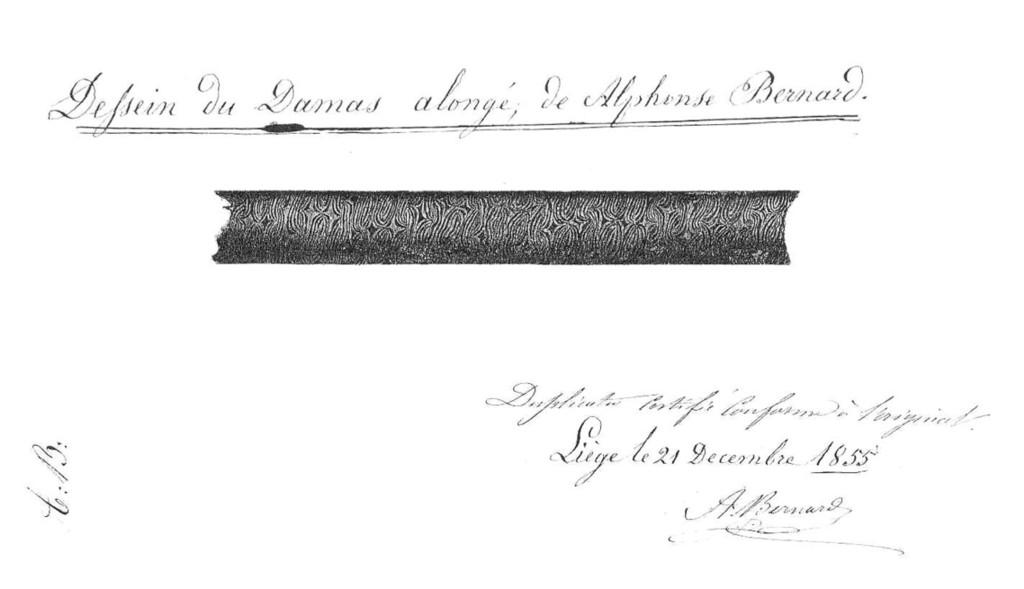 Dessein du Damas alongé, de Alphonse Bernard.
Duplicata certifié Conforme à l'original.
Liège le 21 Decembre 1855
A. Bernard
t: B: